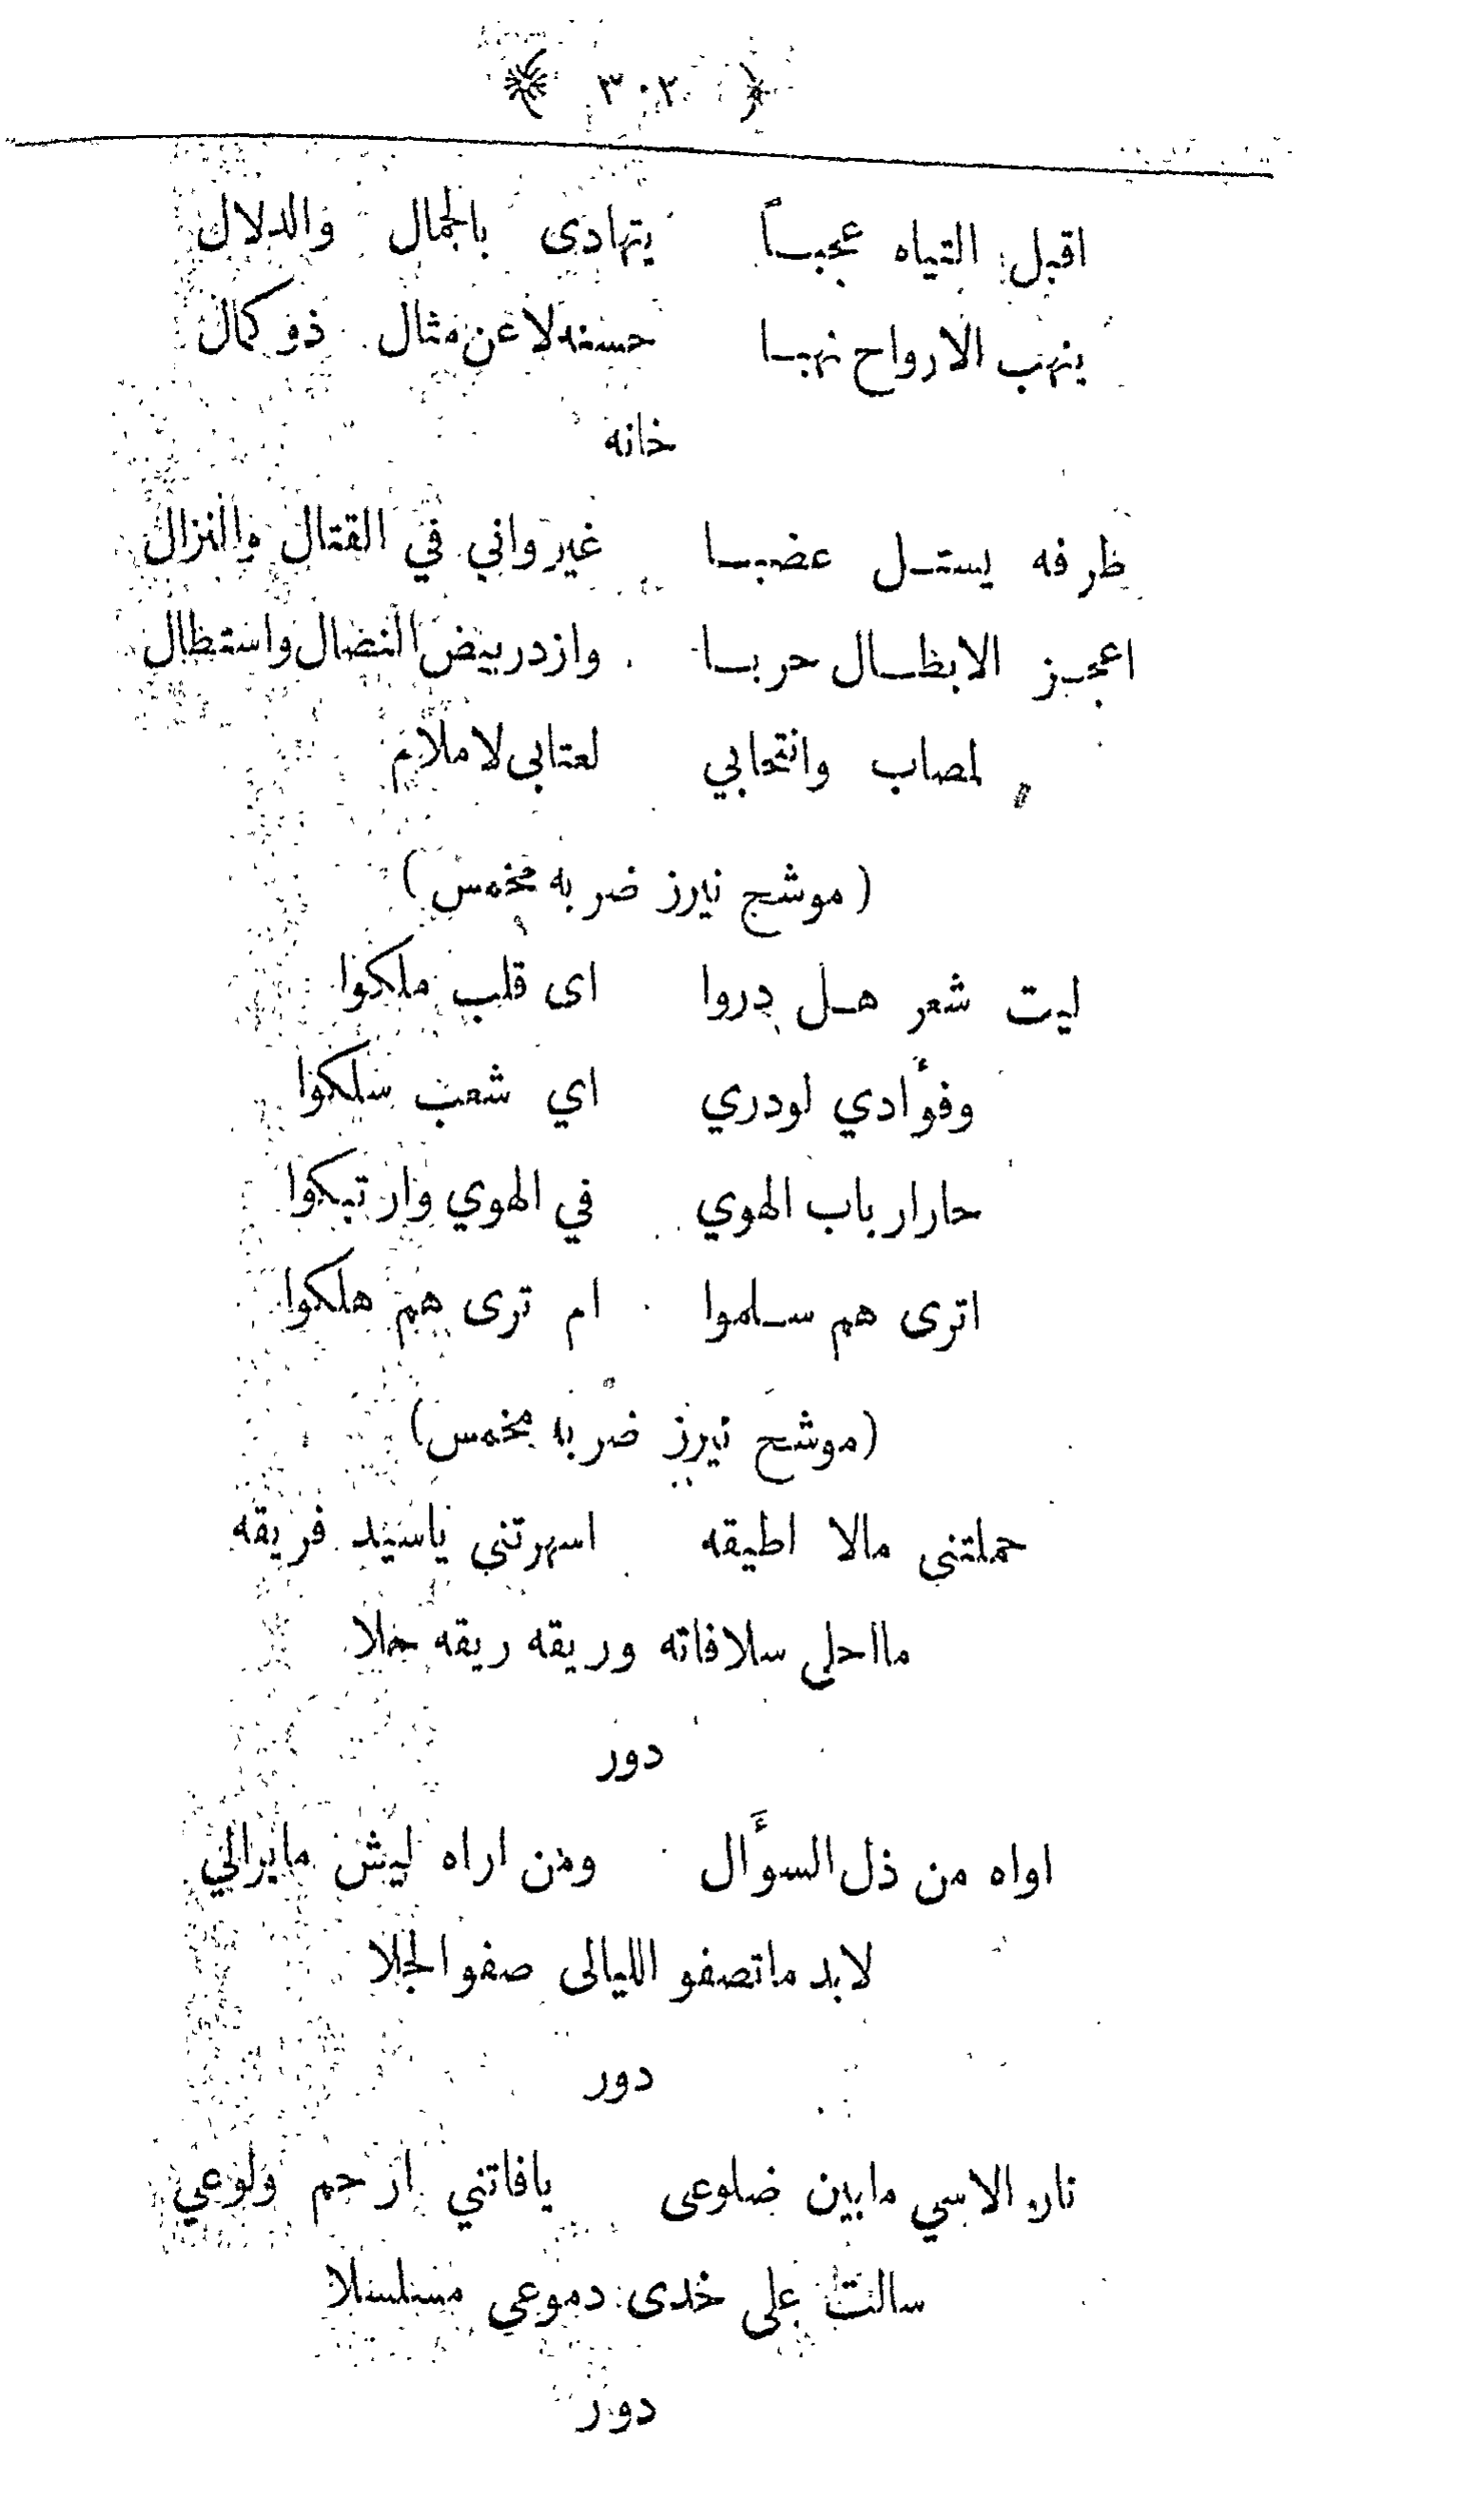 ﴿ ٣٠٢ ﴾
اقبل التياه عجبـاً يتهادى بالجمال والدلال
ينهب الارواح نهبـا حسنه لا عن مثال ذو كمال
خانه
طرفه يستـل عضبـا غير واني في القتال والنزال
اعجـز الابطـال حربـا وازدر بيض النضال واستطال
لمصاب وانتحابي لعتابي لا ملام
(موشح نيرز ضربه مخمس)
ليت شعر هـل دروا اى قلب ملكوا
وفؤادي لودري اي شعب سلكوا
حار ارباب الهوي في الهوي وارتبكوا
اترى هم سـلموا ام ترى هم هلكوا
(موشح نيرز ضربه مخمس)
حملتنى مالا اطيقه اسهرتنى ياسيد فريقه
مااحلى سلافاته وريقه ريقه حلا
دور
اواه من ذل السؤال ومن اراه ليش مايرالي
لابد ماتصفو الليالى صفو الجلا
دور
نار الاسي مابين ضلوعى يافاتني ارحم ولوعي
سالت على خدى دموعي مسلسلا
دور